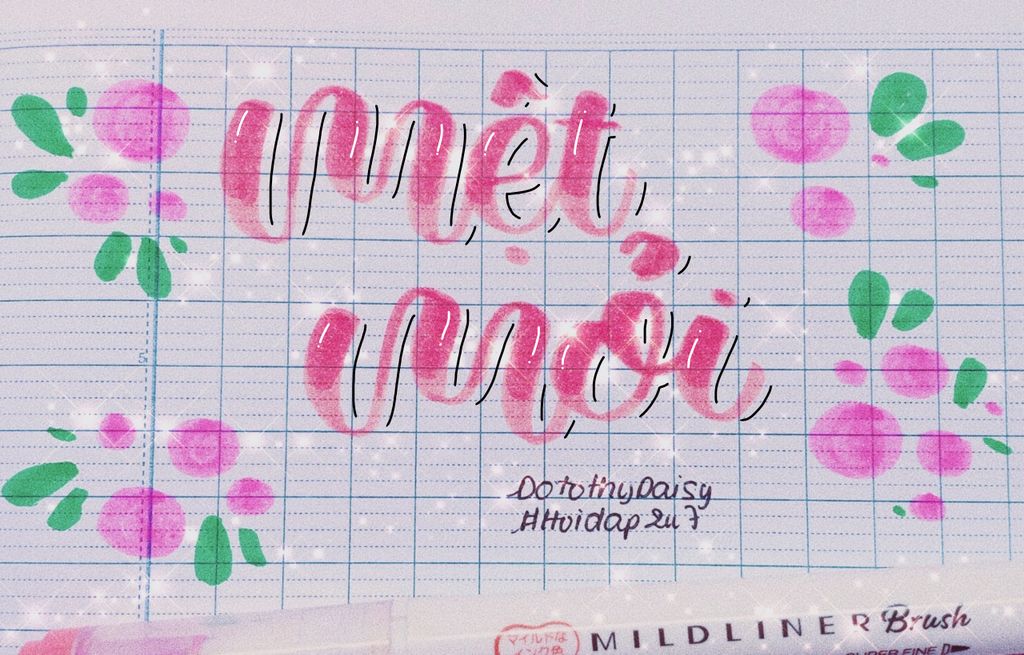 Mệt
mỏi
DorothyDaisy
#Hoidap247
5
マイルドな
インク色
MILDLINER Brush
SUPER FINE